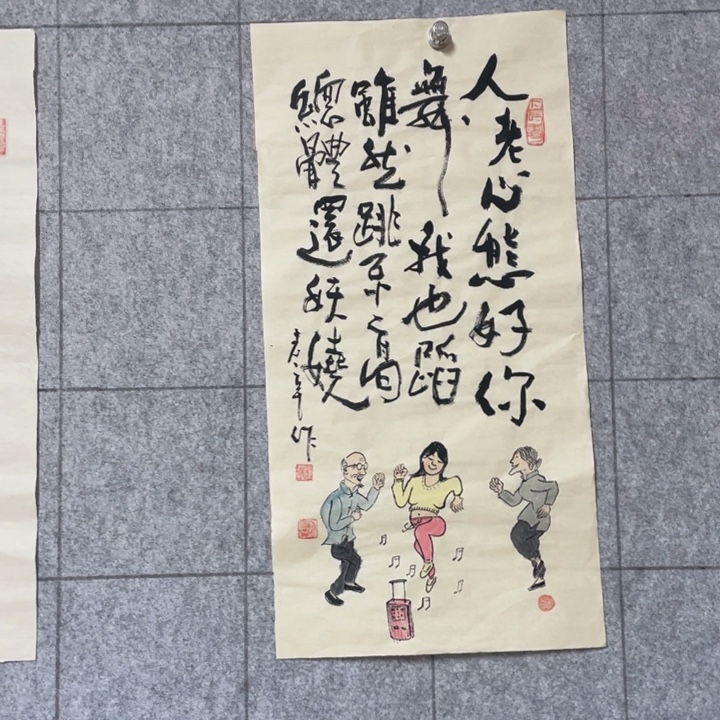 人老心態好你
舞我也蹈
雖然跳不
總體還妖嬈
作